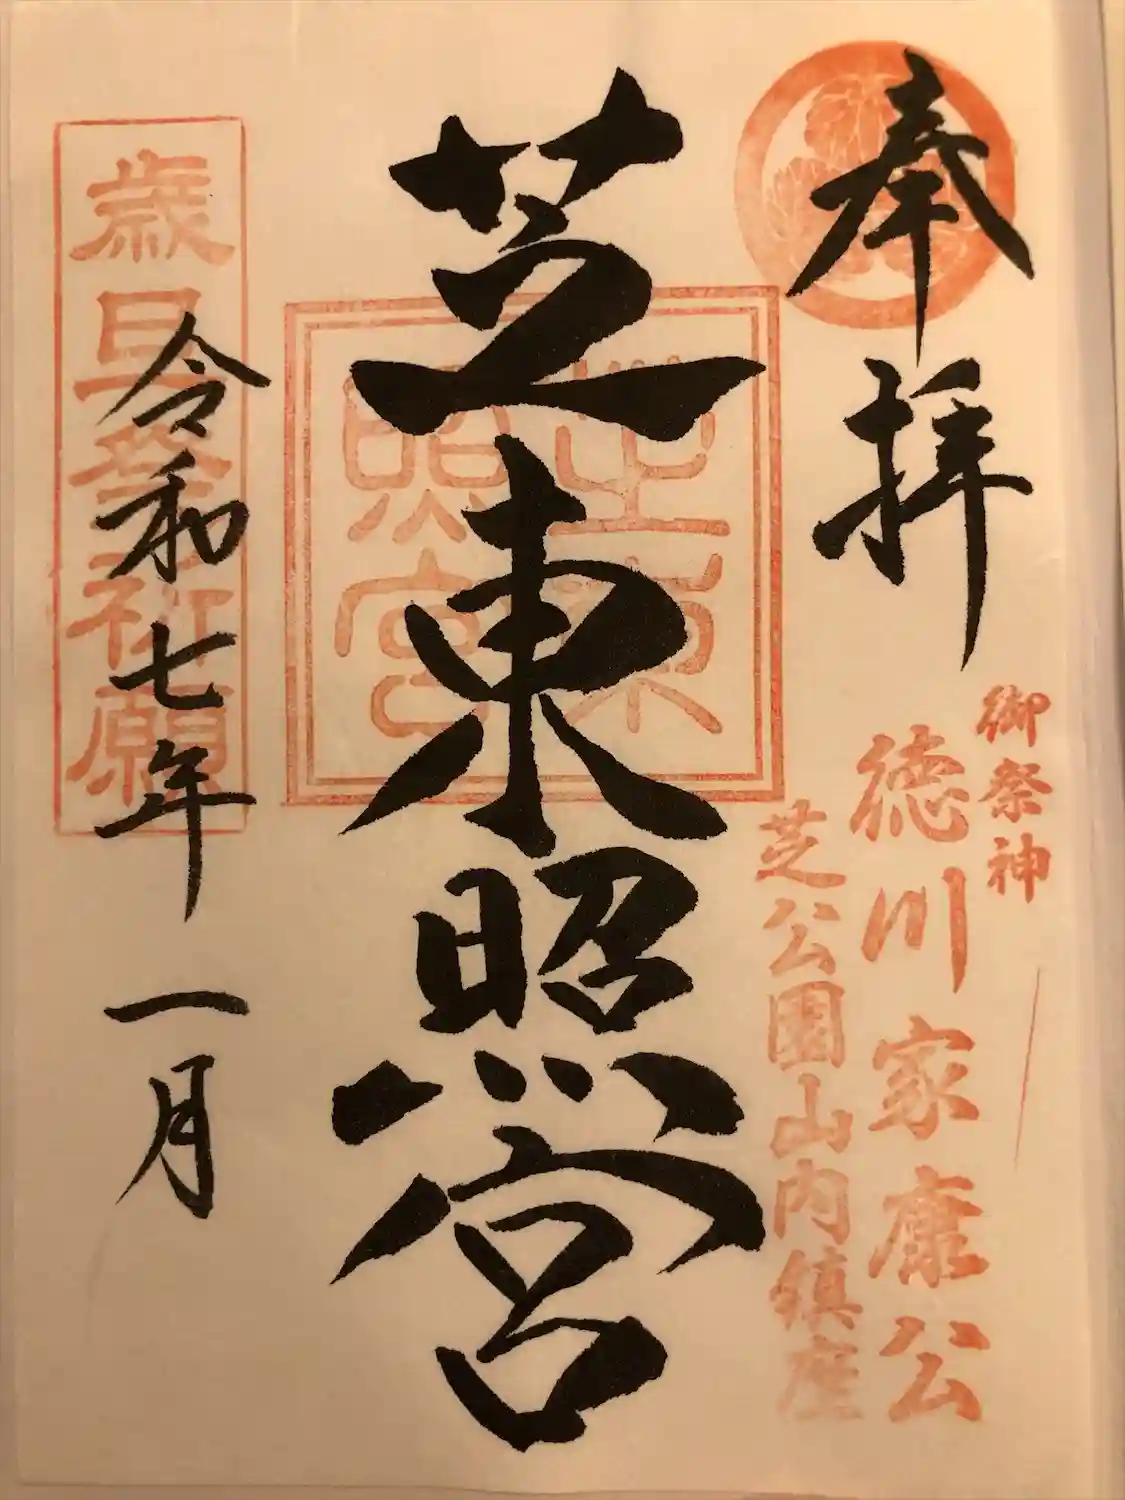 奉拝
御祭神
徳川家康公
芝公園山内鎮座
芝東照宮
芝東照宮
令和七年一月
歳旦祭祈願